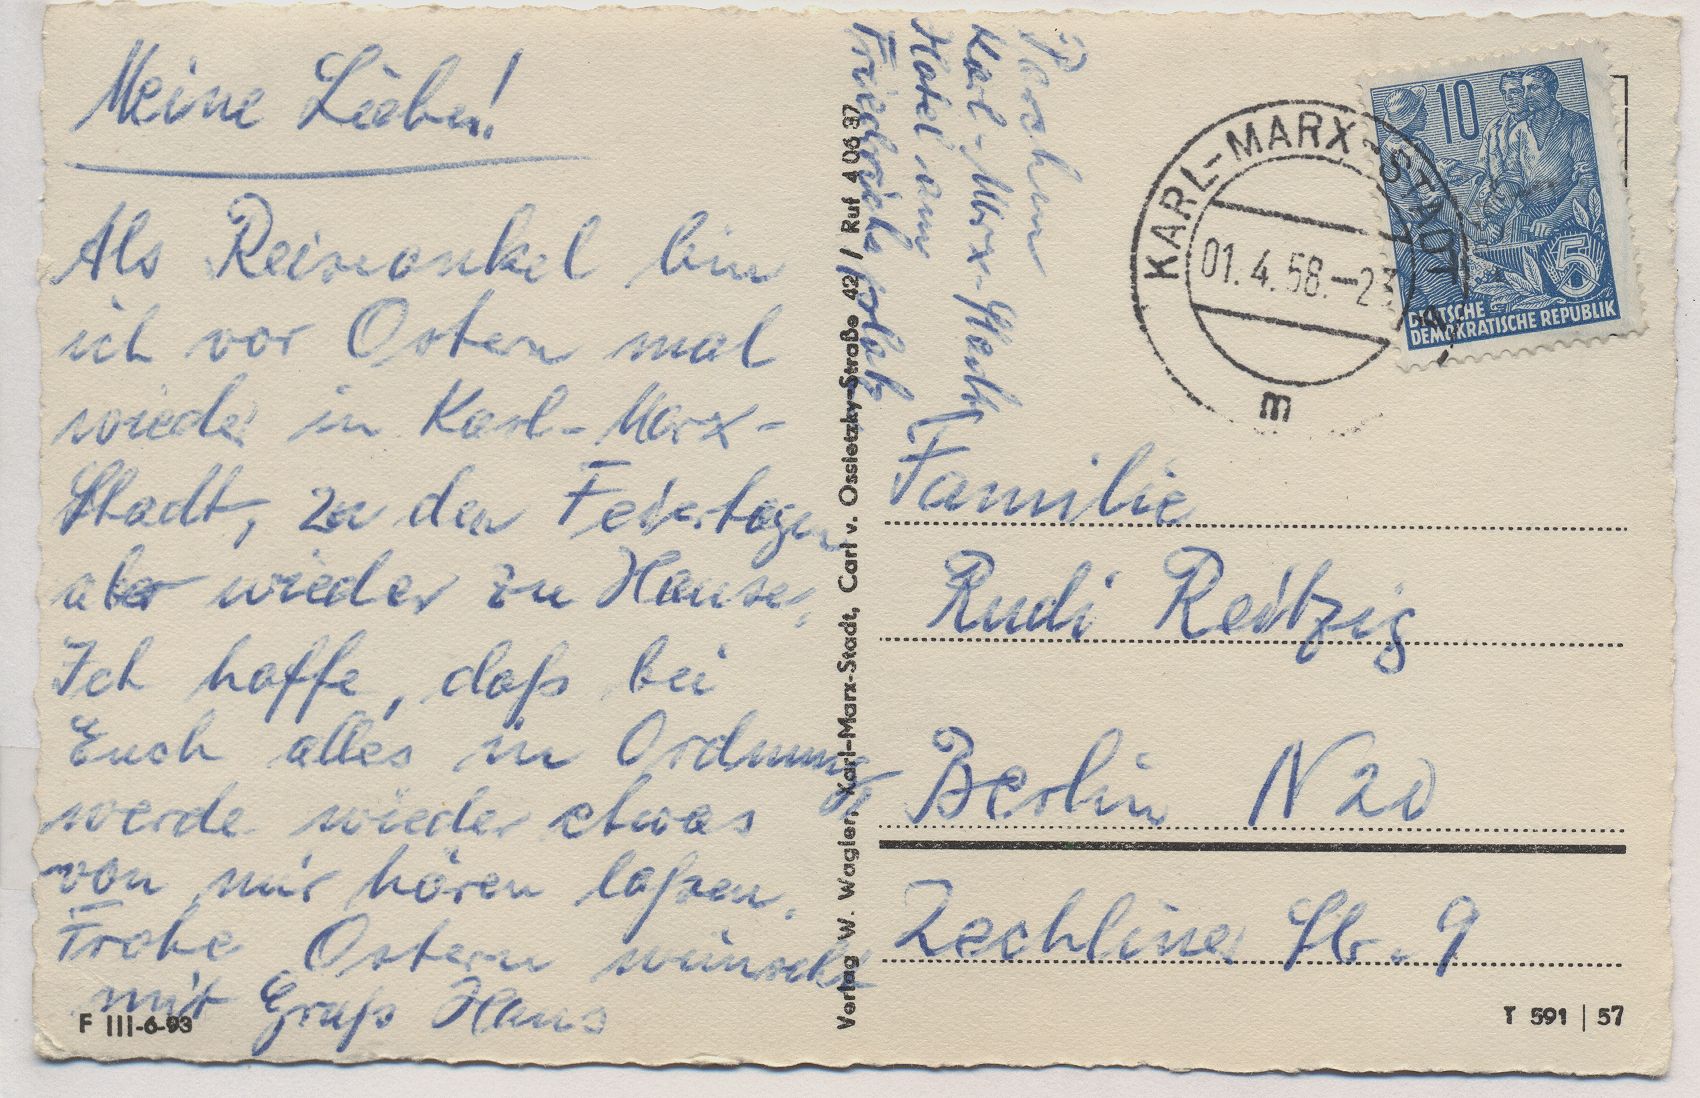 Meine Lieben!
Als Reiseonkel bin
ich vor Ostern mal
wieder in Karl-Marx-
Stadt, zu den Feiertagen
aber wieder zu Hause,
Ich hoffe, daß bei
Euch alles in Ordnung
werde wieder etwas
von mir hören laßen.
Frohe Ostern wünscht
mit Gruß Hans
F III-6-93
Verlag W. Wagler, Karl-Marx-Stadt, Carl v. Ossietzky-Straße 42 / Ruf 4 06 37
Karl-Marx-Stadt
Hotel am
KARL-MARX-STADT
01.4.58.-23
m
10
5
DEUTSCHE
DEMOKRATISCHE REPUBLIK
Familie
Rudi Reitzig
Berlin N 20
Zechliner Str. 9
T 591 | 57